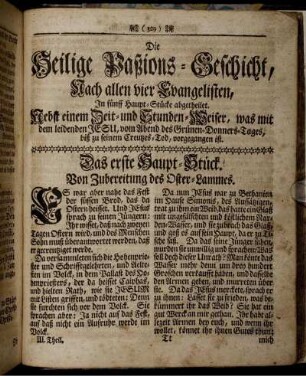 ( 329 )
Die
Heilige Paßions-Geschicht,
Nach allen vier Evangelisten,
In fünff Haupt-Stücke abgetheilet.
Nebst einem Zeit-und Stunden-Weiser, was mit
dem leidenden JESU, vom Abend des Grünen-Donners-Tages,
biß zu seinem Creutzes-Tod, vorgegangen ist.
Das erste Haupt-Stück.
Von Zubereitung des Oster-Lammes.
ES war aber nahe das Fest
der süssen Brod, das da
Ostern heisset. Und JEsus
sprach zu seinen Jüngern:
Ihr wisset, daß nach zweyen
Tagen Ostern wird, und des Menschen
Sohn muß überantwortet werden, daß
er gecreutziget werde.
Da versammleten sich die Hohenprie-
ster und Schrifftgelehrten, und die Aeltesten
im Volck, in den Pallast des Ho-
henpriesters, der da heisset Caiphas,
und hielten Rath, wie sie JESUM
mit Listen griffen, und tödteten: Denn
sie furchten sich vor dem Volck. Sie
sprachen aber: Ja nicht auf das Fest,
auf daß nicht ein Aufruhr werde im
Volck.
Da nun JEsus war zu Bethanien
im Hause Simonis, des Aussätzigen,
trat zu ihm ein Weib, das hatte ein Glaß
mit ungefälschten und köstlichen Nar-
den-Wasser, und sie zubrach das Glaß,
und goß es auf sein Haupt, da er zu Ti-
sche saß. Da das seine Jünger sahen,
wurden sie unwillig und sprachen: Was
soll doch dieser Unrath? Man könte das
Wasser mehr denn um drey hundert
Groschen verkaufft haben, und dasselbe
den Armen geben, und murreten über
sie. Da das JEsus merckete, sprach er
zu ihnen: Lasset sie zu frieden, was be-
kümmert ihr das Weib? Sie hat ein
gut Werck an mir gethan. Ihr habt al-
lezeit Armen bey euch, und wenn ihr
wollet, könnet ihr ihnen Guts thun;
III. Theil.
Tt
mich